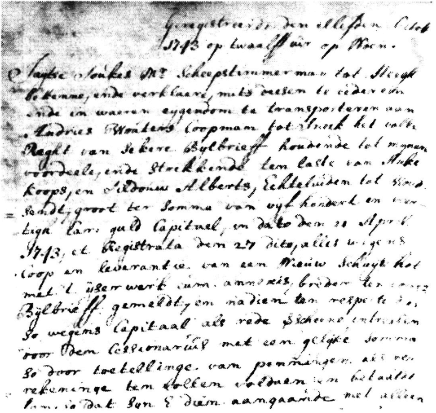 Geregistreerd den ellefden Octob
1743 op twaalff uir op Noen.
Taytse Joukes Mr Scheepstimmerman tot
bekenne, ende verklaere, mits desen te cederen
ende in waeren eygendom te transporteren aan
Andries Wouters Coopman tot Sneek het volle
Reght van sekere Bylbrieff houdende tot mynen
voordeele, ende strekkende ten laste van Anke
koops, en Alberts, Echteluiden tot
sendt, groot ter somma van vyf hondert en
tigh Car: guld Capitael, in dato den 21 April
1743, et Registrata dem 27 dito, alles wegens
Coop en leverantie van een Nieuw Schuyte hol
met 't yserwerk cum annexis, breder ten
Bylbrieff gemeldt, en nadien ten respecte
so wegens Capitael als rede Scheene intressen
door dem Cessionarius met een gelyke somma
so door toetellinge van penningen als
rekeninge ten vollen voldaen en betaelt
so dat syn E diem aengaende met alleen